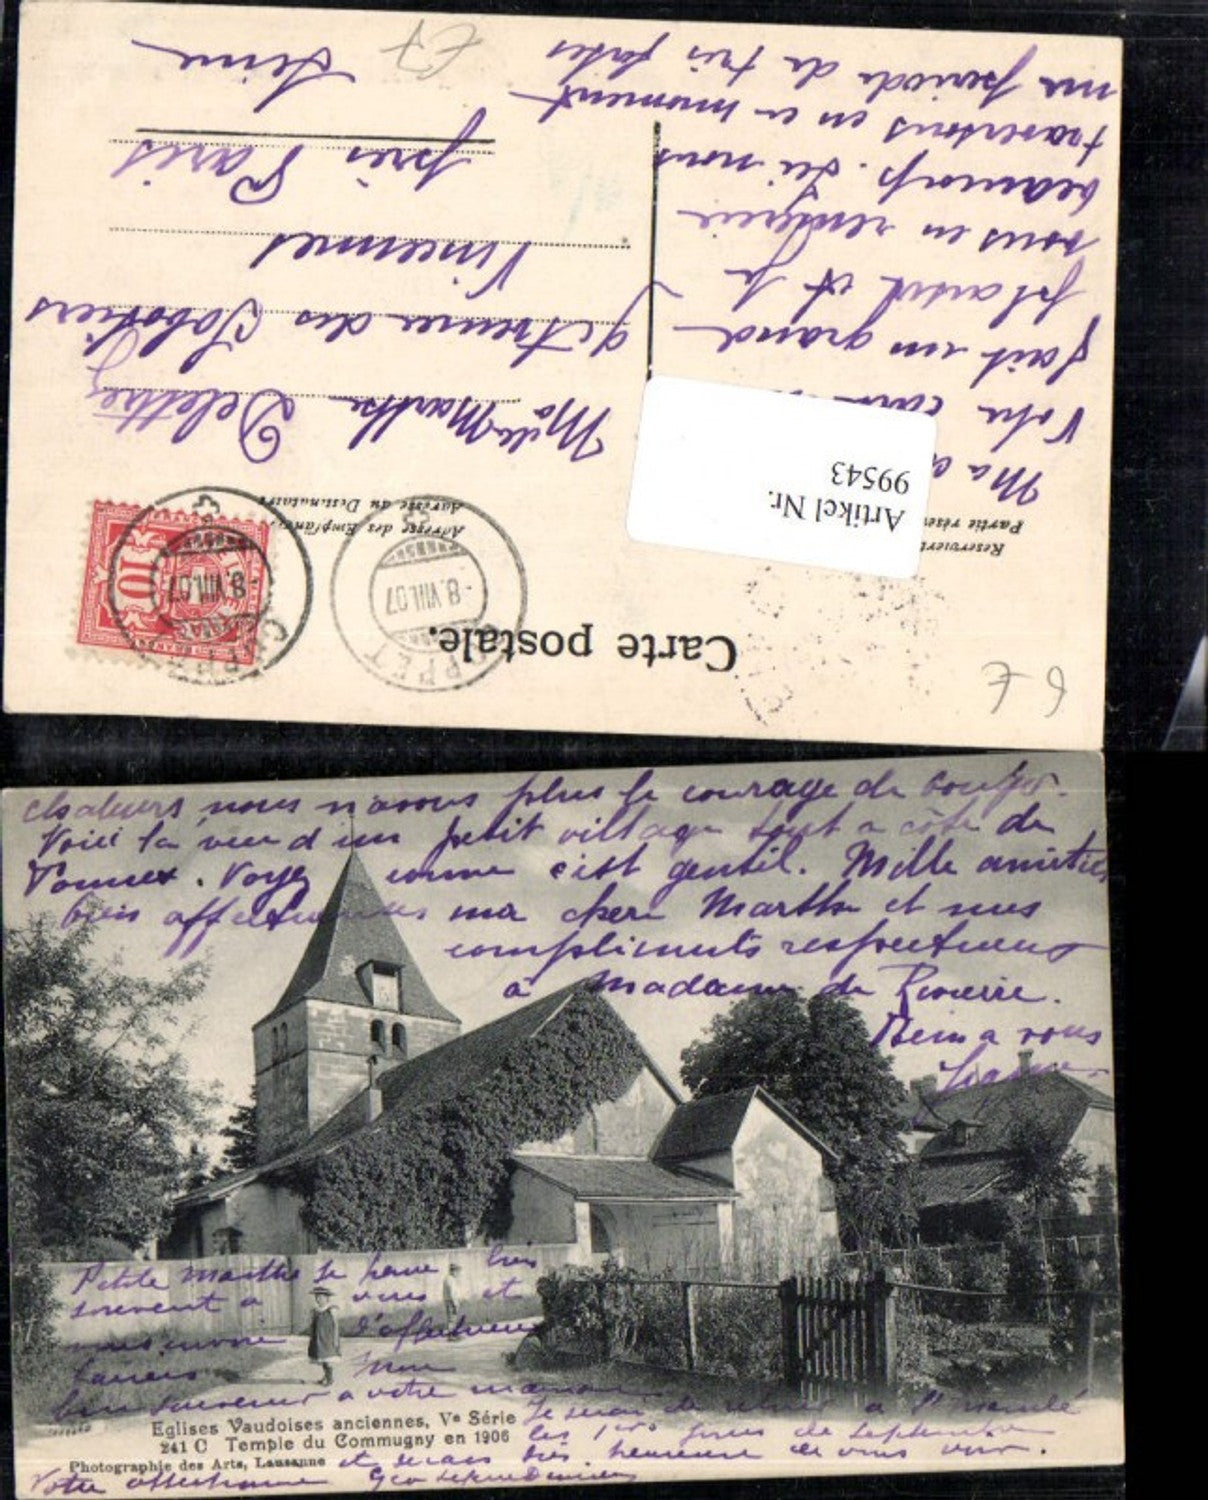 Carte postale.
Reservier
Partie réser
Adresse des Empfängers
Adresse du Destinataire
COPPET
-8.VIII.07
COPPET
-8.VIII.07
10
Artikel Nr.
99543
6 €
€7
Mlle Marthe Delettrez
9 Avenue des Sabotiers
Vincennes
près Paris
Seine
Ma
Votre carte
fait un grand
plaisir et je
vous en remercie
beaucoup. Ici nous
traversons en ce moment
une période de très fortes
chaleurs nous n'avons plus le courage de bouger.
Voici la vue d'un petit village tout à côté de
Tannex. Voyez comme c'est gentil. Mille amitiés
bien affectueuses ma chère Marthe et mes
compliments respectueux
à Madame de Rivière.
Bien à vous
Petite Marthe je pense bien
souvent à vous et
vous envoie d'affectueux
baisers
bon souvenir à votre maman
Je serai de retour à St Mandé
les 1ers jours de septembre
et serais très heureuse de vous voir.
Votre affectionnée
Eglises Vaudoises anciennes, Ve Série
241 C Temple du Commugny en 1906
Photographie des Arts, Lausanne